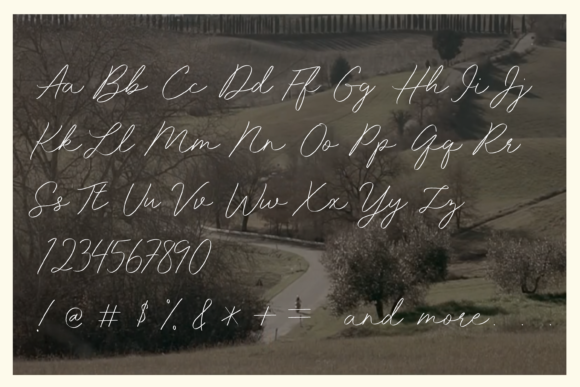 Aa Bb Cc Dd Ff Gg Hh Ii Jj
Kk Ll Mm Nn Oo Pp Qq Rr
Ss Tt Uu Vv Ww Xx Yy Zz
1234567890
! @ # $ % & * + = and more. . . .